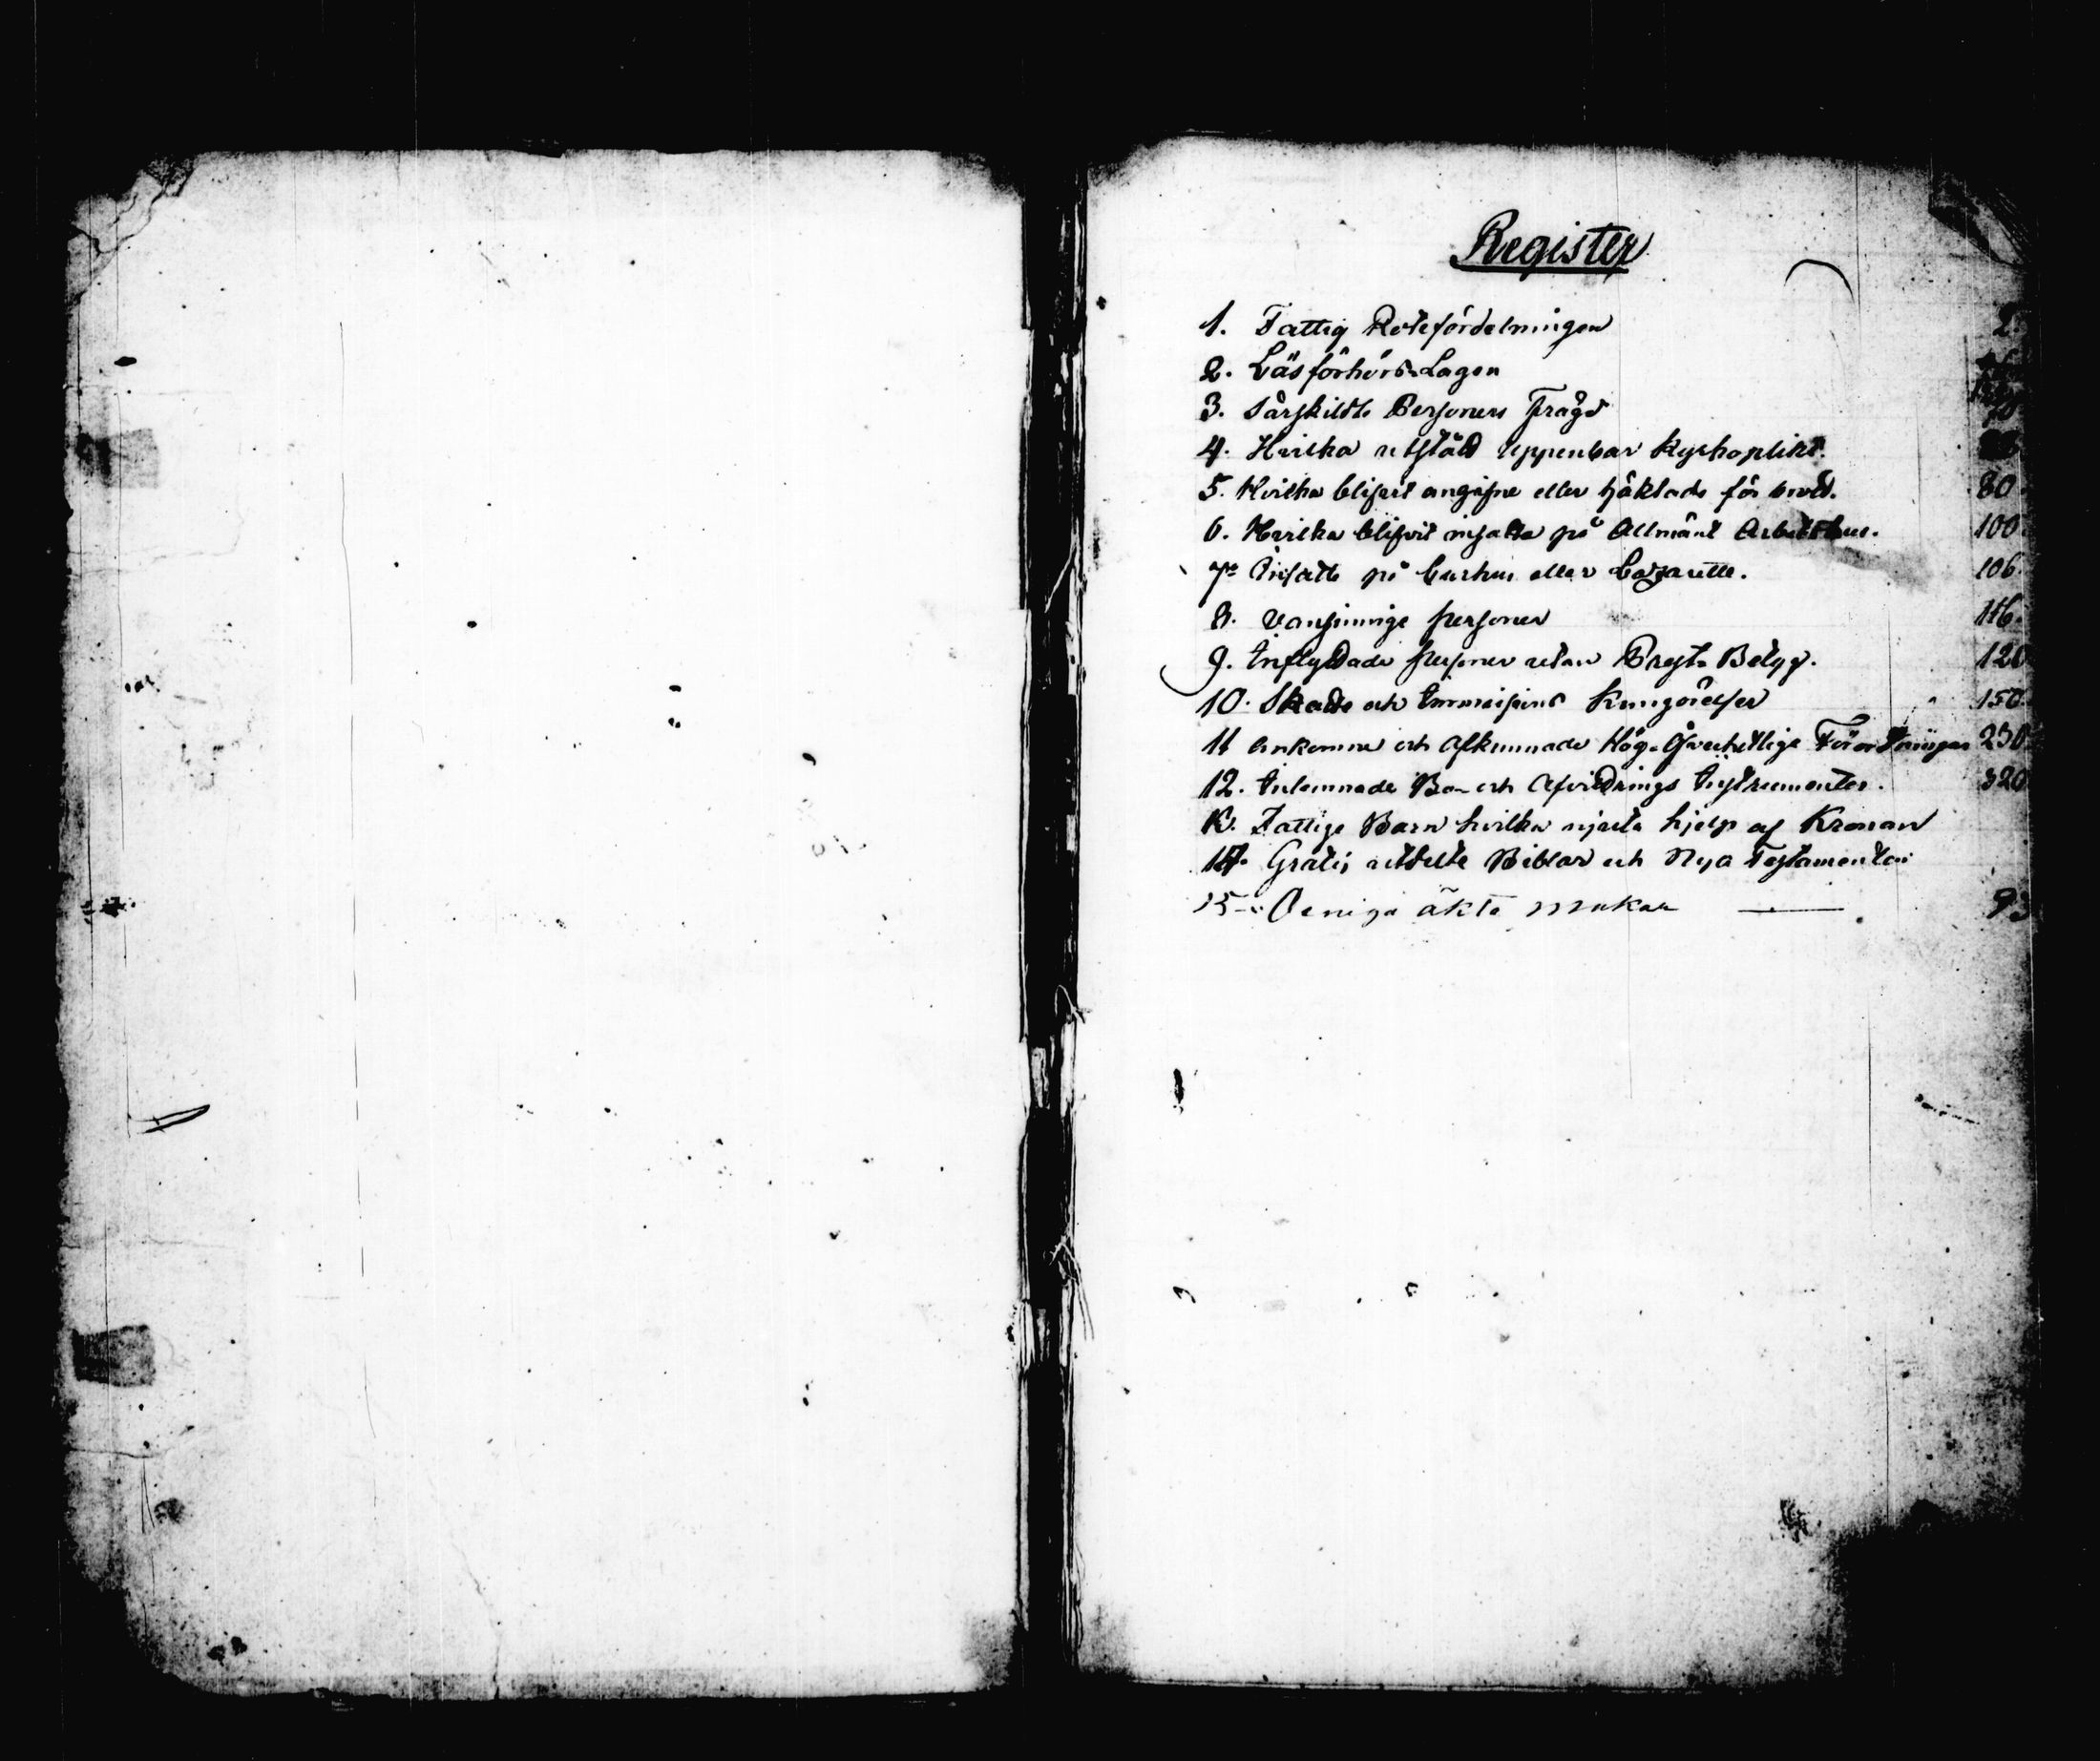 Register
1. Fattig Rotefördelningen 2.
2. Läsförhörs-Lagen
3. Särskildte Personers Frågd
4. Hvilka utstådt uppenbar Kyrkoplikt.
5. Hvilka blifvit angifne eller häktade för brott. 80.
6. Hvilka blifvit insatta på Allmänt Arbetshus. 100.
7. Insatte på Curhus eller Lazarette. 106.
8. Vansinnige personer 116.
9. Inflyttade personer utan Prest-Betyg. 120
10. Kungörelser 150.
11 Ankomne och Afkunnade Hög-Öfverhetlige Förordningar 230
12. Inlemnade Bo- och Afvittrings Instrumenter. 320
13. Fattige Barn hvilka njuta hjelp af Kronan
14. Gratis utdelte Biblar och Nya Testamenten
15- Oeniga äkta makar — 93